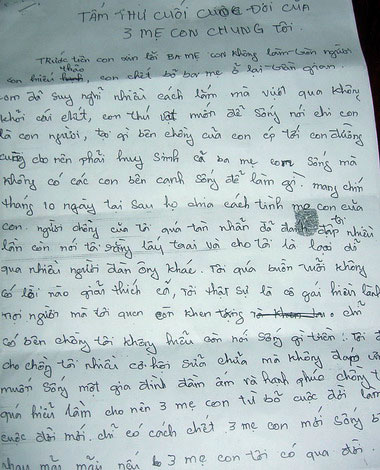 TÂM THƯ CUỐI CUỘC ĐỜI CỦA
3 MẸ CON CHÚNG TÔI.
Trước tiên con xin lỗi BA MẸ con không làm tròn người
con hiếu thảo, con chết bỏ ba mẹ ở lại trần gian.
con đã suy nghĩ nhiều cách lắm mà vượt qua không
khỏi cái chết, con thứ vật muốn để sống nói chi con
là con người, tò gì bên chồng của con ép tới con đường
cùng cho nên phải huy sinh cả ba mẹ con sống mà
không có các con bên cạnh sống để làm gì. mang chín
tháng 10 ngày tại sau họ chia cách tình mẹ con của
con. người chồng của tôi quá tàn nhẫn đã đánh đạp tôi nhiều
lần còn nói tôi rằng lấy traai và cho tôi là loại dỗ
qua nhiều người đàn ông khác. Tôi quá buồn rười không
có lời nào giải thích cả, tôi thật sự là cô gái hiền lành
mọi người mà tôi quen con khen tặng chỉ
có bên chồng tôi không hiểu còn nói sống gì tiền: Tôi đã
cho chồng tôi nhiều cơ hội sửa chữa mà không đạp ứng
muốn sống một gia đình đầm ấm và hạnh phúc chồng t
quá hiểu lầm cho nên 3 mẹ con tự bỏ cuộc đời làm
cuộc đời mới. chỉ có cách chết 3 mẹ con mới sống b
nhau mãi mãi nếu 3 mẹ con tôi có qua đời